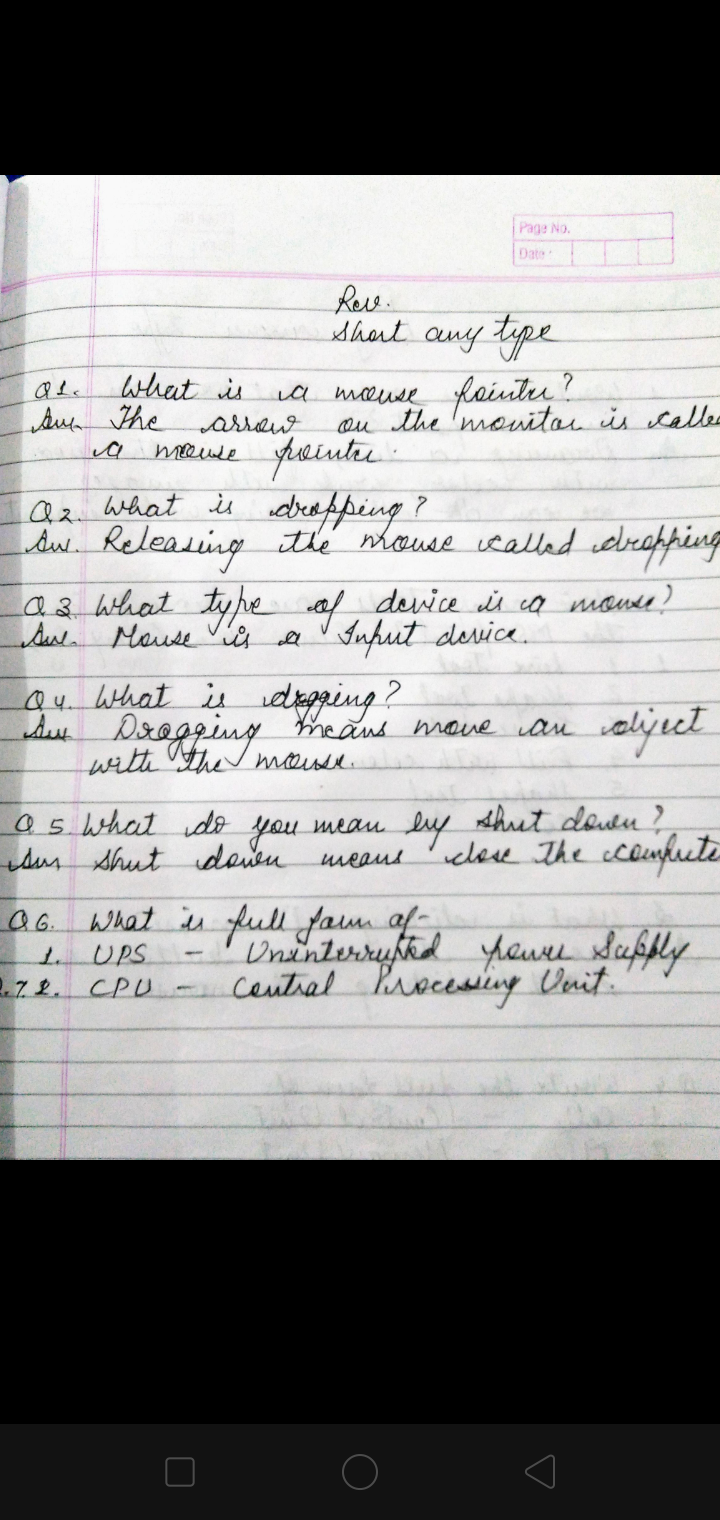 Page No.
Date :
Rev.
Short any type
Q1. What is a mouse pointer?
Ans. The arrow on the monitor is called
a mouse pointer.
Q2. What is dropping?
Ans. Releasing the mouse called dropping
Q3. What type of device is a mouse?
Ans. Mouse is a Input device.
Q4. What is dragging?
Ans Dragging means move an object
with the mouse.
Q5 What do you mean by shut down?
Ans Shut down means close the compute
Q6. What is full form of-
1. UPS - Uninterrupted power Supply
.7.2. CPU - Central Processing Unit.